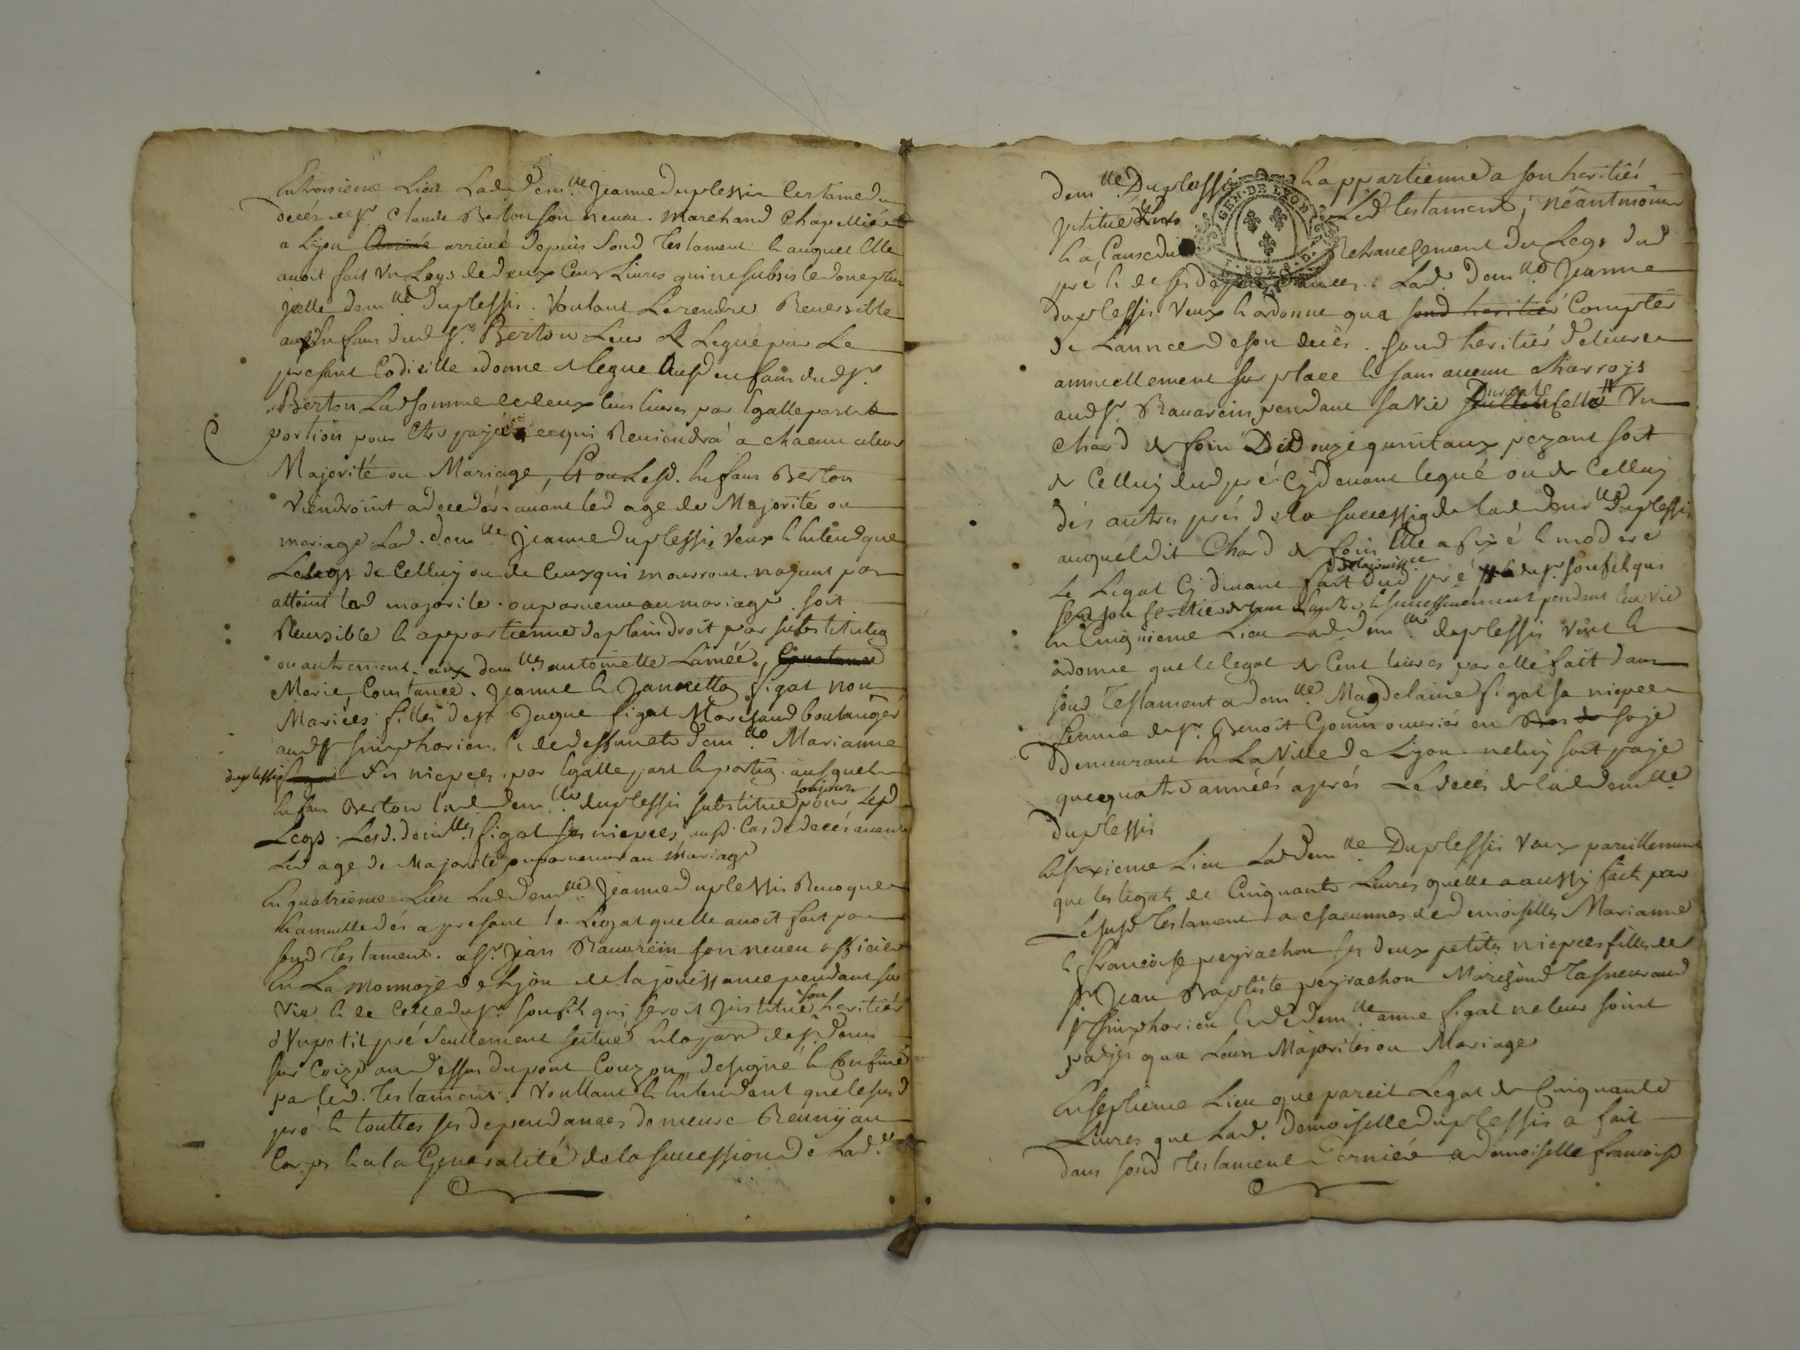 En troisieme Lieu Lad. Dem.lle Jeanne duplessis
decés de Sr. Claude Berton son neveu. Marchand Chapellier
a Lyon arrivé depuis Sond. Testament. auquel Elle
avoit fait Un Legs de deux Cens Livres qui ne subsiste donc plus
dem.lle Duplessis. Voulant Le rendre Reversible
aux Enfans dud. Sr. Berton Leur Legue par Le
present Codicille donne et legue Ausd. enfans dud. Sr.
Berton Lad. somme de deux Cens livres par Egalle part et
portion pour Etre payé ce qui Reviendra a chacun a leur
Majorité ou Mariage, Et ou Lesd. Enfans Berton
Viendroint a decedér avant led. age de Majorité ou
mariage Lad. dem.lle Jeanne duplessis Veux Et Entend que
Le legs de Celluy ou de Ceux qui mourront. n'ayant pas
atteint lad. majorite. ou parvenu au mariage soit
Reversible Et appartienne de plain droit par substitution
ou autrement. aux dem.lles antoinette L'aineé,
Marie, Constance. Jeanne Et Jannetta figat non
Mariées filles de Sr. Jaque figat Marchand boulanger
aud. St. Simphorien, Et de deffuncte dem.lle Marianne
duplessis Ses niepces. par Egalle part Et portion ausquels
Enfans Berton lad. Dem.lle duplessis substitue toujours pour led.
Legs. Lesd. demlles figat Ses niepces ausd. Cas de decés avant
Led. age de Majorité ou parvenu au mariage
En quatrieme Lieu Lad. Demlle Jeanne Duplessis Revoque
Et annulle dés a present le Legat quelle avoit fait par
Sond. Testament. a Sr. Jean Ravarein son neveu officier
En La Monnoye de Lyon de la jouissance pendant sa
Vie Et de Celle du Sr. son fils qui seroit Institué Son heritiér
d'Un petit pré Seullement scitué
Sur Coize au dessus du pont Couzon designé Et Confiné
par led. Testament. Voullant Et Entendant que le susd.
pré Et touttes ses dependances demeure Reuny au
Corps Et a la Generalité de la succession de Lad.
dem.lle Duplessis Et appartienne a Son heritiér
Institué Led. testament; néantmoins
Et a Cause du Retranchement du Legs dud.
pré Lad. Dem.lle Jeanne
duplessis Veux Et ordonne qua sond heritier Compter
de L'annee de son decés. Sond. heritiér delivre
annuellement sur place Et sans aucun Charroys
aud. Sr. Ravarein, pendant sa Vie Durante Un
Chard de foin De Douze quintaux pezant soit
de Celluy dud. pré Cy devant legué ou de Celluy
dés autres prés de la succession de lad. Dem.lle Duplessis
auquel dit Chard de foin Elle a fixé Et modéré
Le Legat Cy devant fait de la jouissance dud. pré a dud. Sr. son fils qui
successivement pendant leur vie
En Cinquieme Lieu Lad. Dem.lle duplessis veut Et
ordonne que le legat de Cent livres par elle fait dans
sond. Testament a dem.lle Magdelaine figat sa niepce
femme de Sr. Benoit Gonin ouvriér en soye
Demeurant En La Ville de Lyon. ne luy soit payé
que quatre années aprés Le decés de lad. Demlle.
Duplessis
En sixieme Lieu Lad. Dem.lle Duplessis Veux pareillement
que les legats de Cinquante Livres quelle a aussy fait par
Le susd. Testament a chacunnes de demoiselles Marianne
Et francoise peyrachon ses deux petites niepces filles de
Sr. Jean Baptiste peyrachon Marchand Taneur aud.
St. Simphorien Et de Dem.lle anne figat ne leur soint
payés qua Leurs Majorités ou Mariage
En septieme Lieu que pareil Legat de Cinquante
Livres que Lad. Demoiselle duplessis a fait
dans sond. Testament Dernier a Demoiselle francoise
GEN. DE LYON